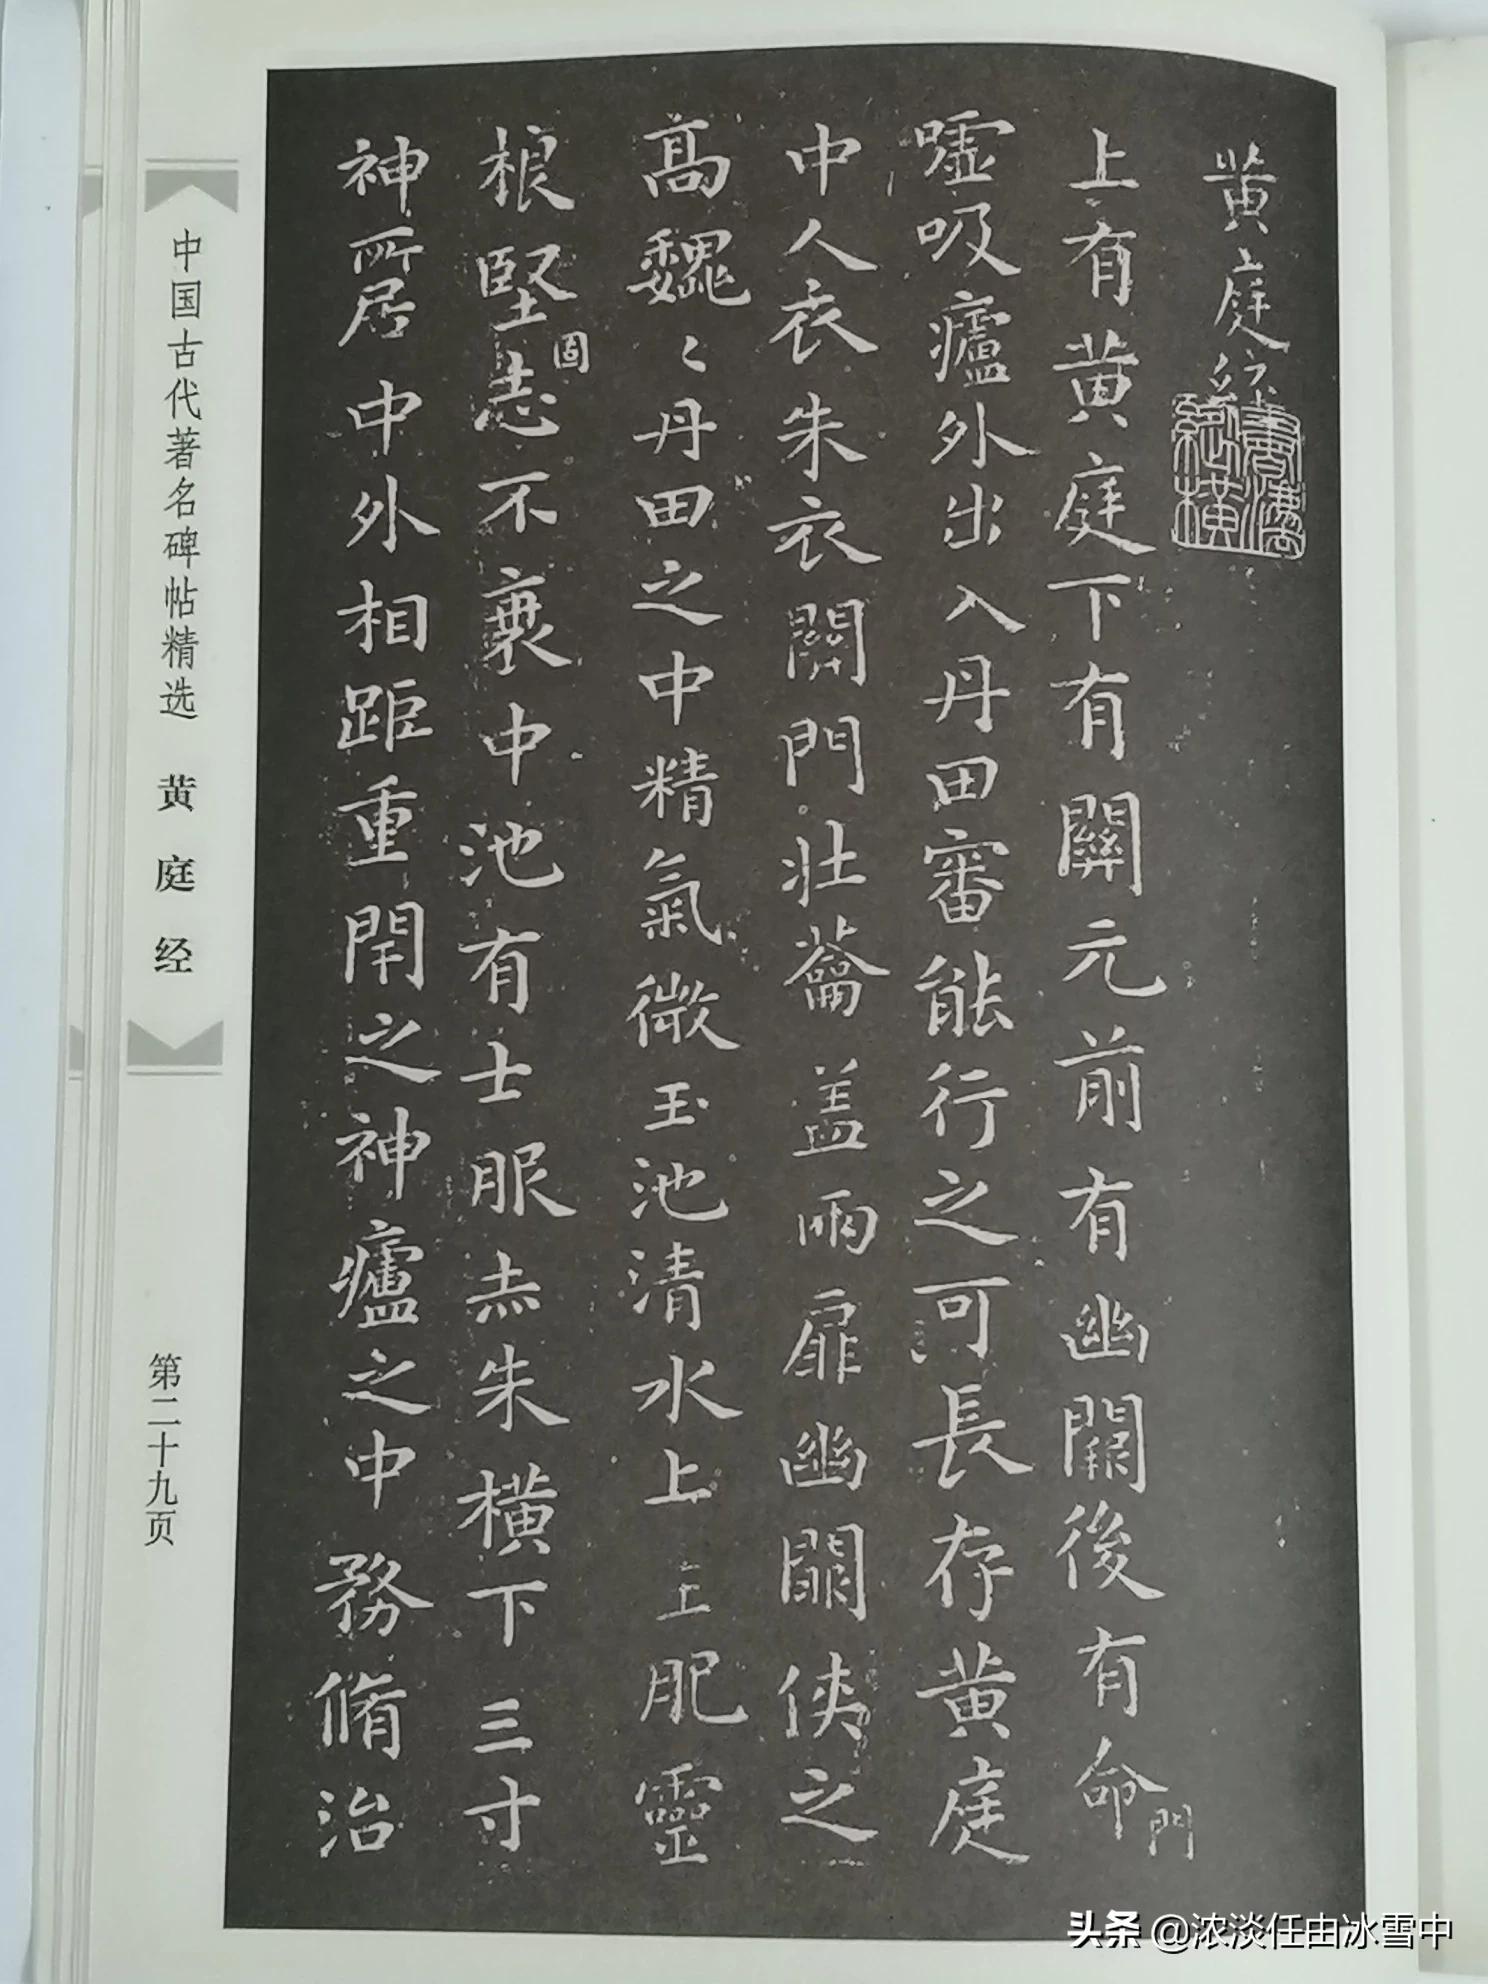 黃庭經
上有黃庭下有關元前有幽闕後有命門
噓吸廬外出入丹田審能行之可長存黃庭
中人衣朱衣關門壯蘥盖兩扉幽闕俠之
高魏〻丹田之中精氣微玉池清水上生肥靈
根堅固志不衰中池有士服赤朱橫下三寸
神所居中外相距重閇之神廬之中務脩治
中国古代著名碑帖精选 黄庭经
第二十九页
头条 @浓淡任由冰雪中